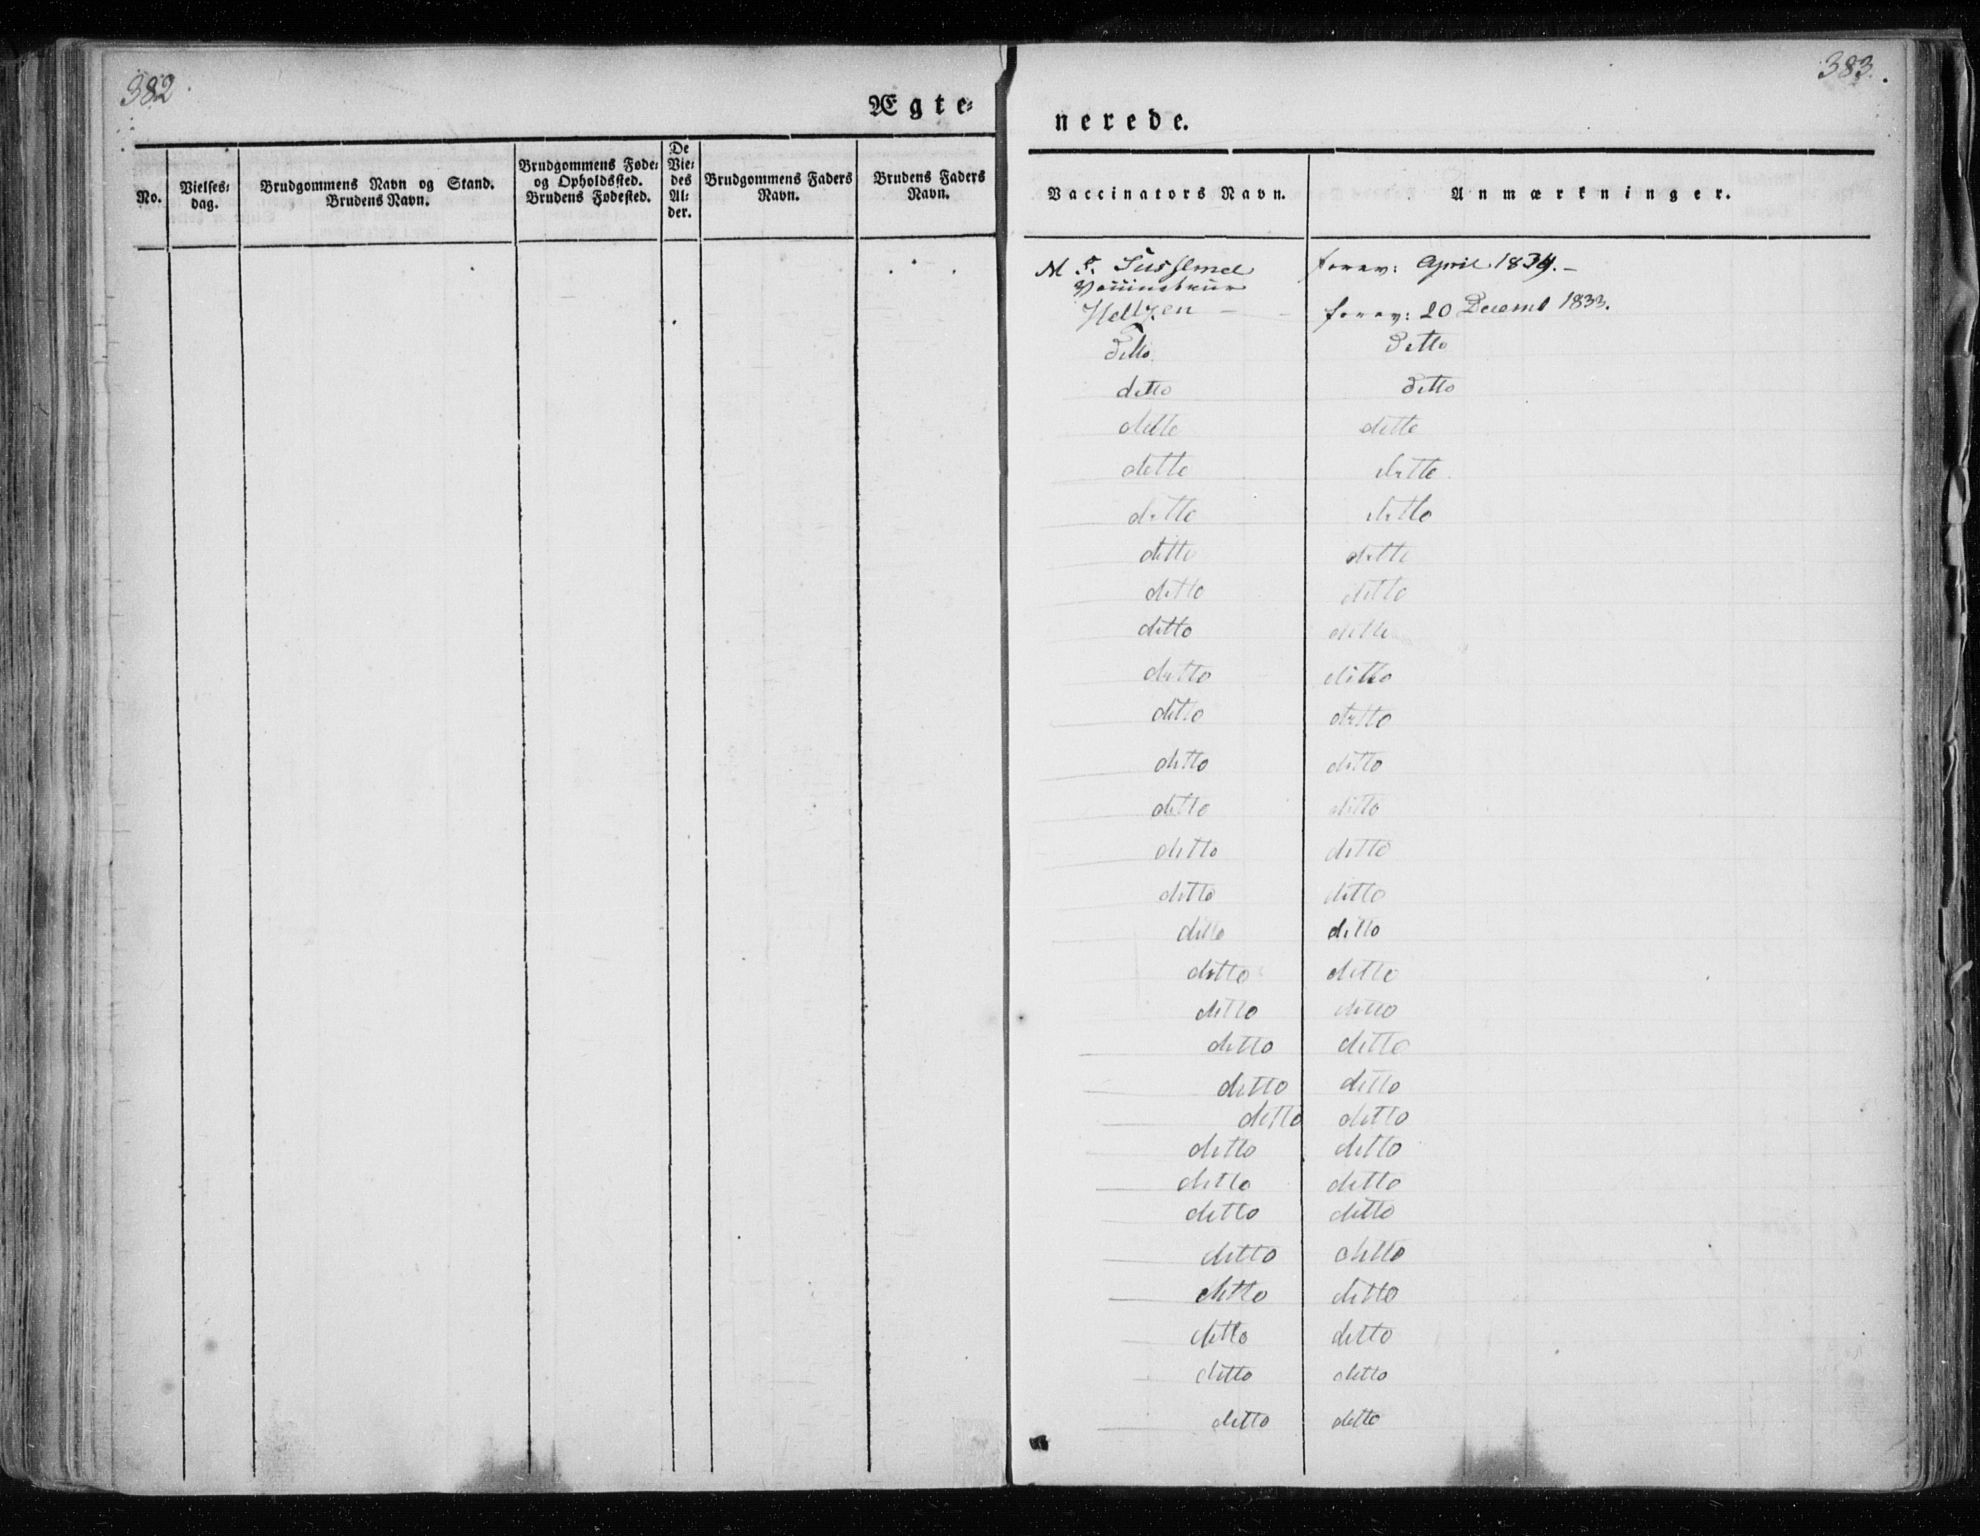 382
Ægte-
No.
Vielses-
dag.
Brudgommens Navn og Stand.
Brudens Navn.
Brudgommens Føde-
og Opholdssted.
Brudens Fødested.
De
Vie-
des
Al-
der.
Brudgommens Faders
Navn.
Brudens Faders
Navn.
383.
nerede.
Vaccinators Navn.
Anmærkninger.
April 1834.
Heltzen 20 Decemb 1833.
Ditto Ditto
ditto Ditto
ditto ditto
ditto ditto
ditto ditto
ditto ditto
ditto ditto
ditto ditto
ditto ditto
ditto ditto
ditto ditto
ditto ditto
ditto ditto
ditto ditto
ditto ditto
ditto ditto
ditto ditto
ditto ditto
ditto ditto
ditto ditto
ditto ditto
ditto ditto
ditto ditto
ditto ditto
ditto ditto
ditto ditto
ditto ditto
ditto ditto